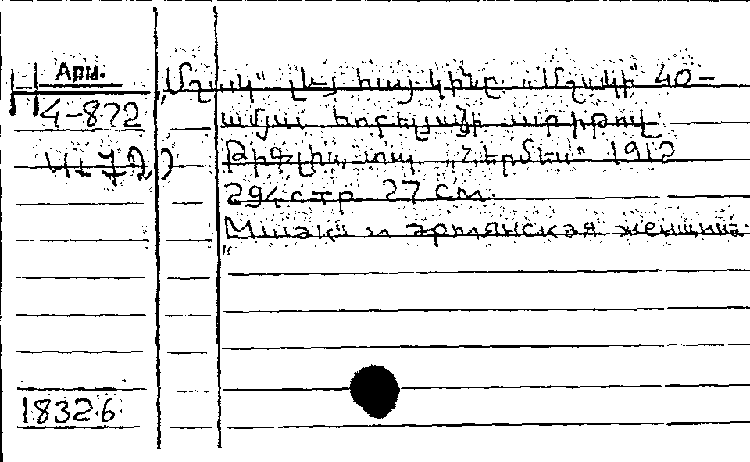 Арм.
4-872
„Մշակ" եւ հայ կինը „Մշակի" 40-
ամյա հոբելյանի առիթով
Թիֆլիս, տպ. „Հերմես" 1912
294 стр 27 см.
„Мшак" и армянская женщина
18326